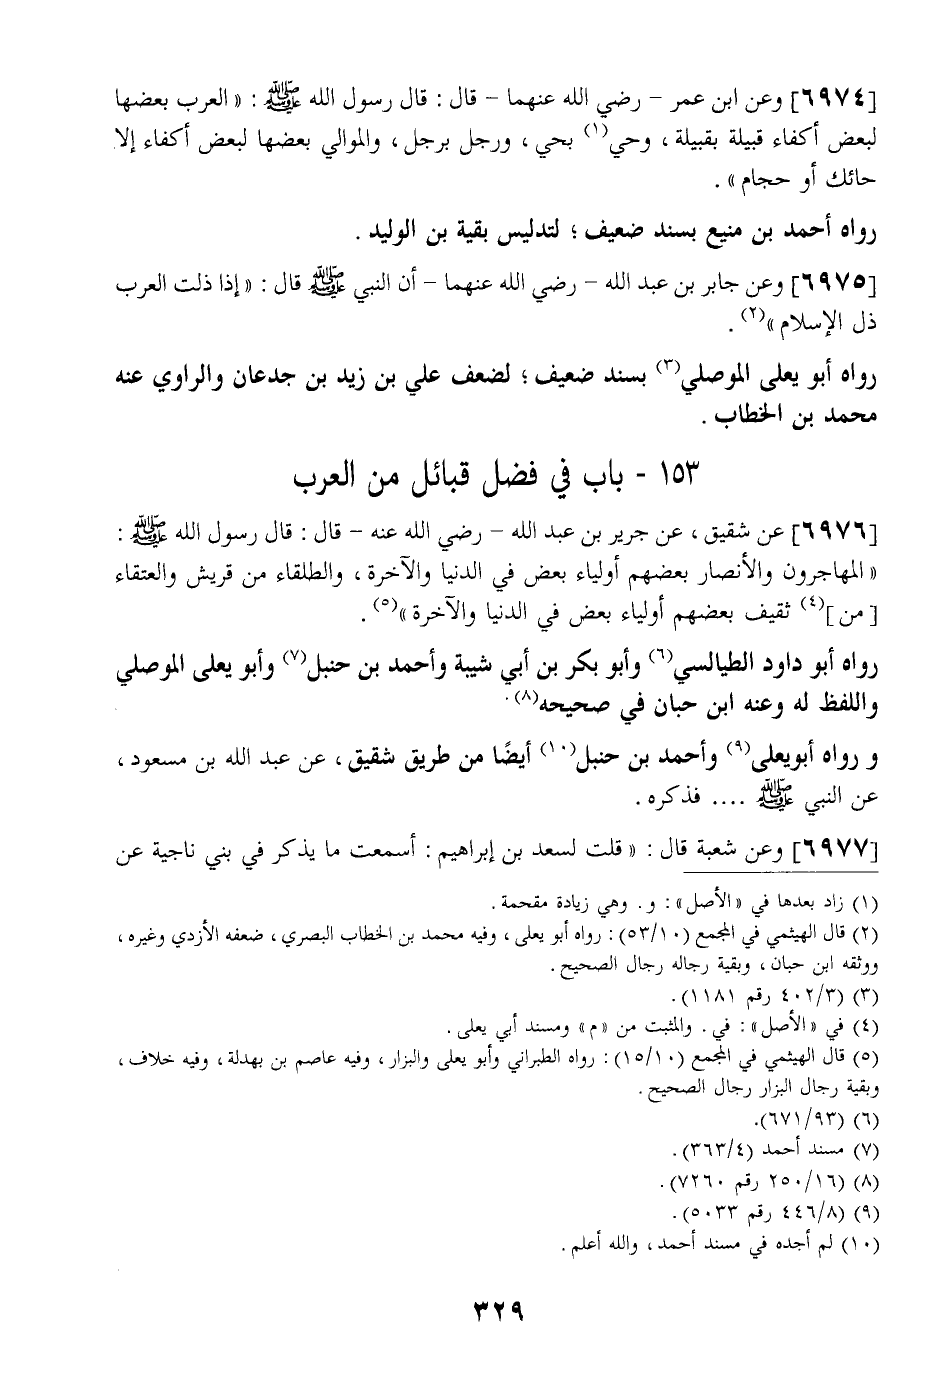 [٦٩٧٤] وعن ابن عمر - رضي الله عنهما - قال : قال رسول الله ﷺ : « العرب بعضها
لبعض أكفاء قبيلة بقبيلة ، وحي(١) بحي ، ورجل برجل ، والموالي بعضها لبعض أكفاء إلا
حائك أو حجام » .
رواه أحمد بن منيع بسند ضعيف ؛ لتدليس بقية بن الوليد .
[٦٩٧٥] وعن جابر بن عبد الله - رضي الله عنهما - أن النبي ﷺ قال : « إذا ذلت العرب
ذل الإسلام »(٢) .
رواه أبو يعلى الموصلي(٣) بسند ضعيف ؛ لضعف علي بن زيد بن جدعان والراوي عنه
محمد بن الخطاب .
١٥٣ - باب في فضل قبائل من العرب
[٦٩٧٦] عن شقيق ، عن جرير بن عبد الله - رضي الله عنه - قال : قال رسول الله ﷺ :
« المهاجرون والأنصار بعضهم أولياء بعض في الدنيا والآخرة ، والطلقاء من قريش والعتقاء
[من](٤) ثقيف بعضهم أولياء بعض في الدنيا والآخرة »(٥) .
رواه أبو داود الطيالسي(٦) وأبو بكر بن أبي شيبة وأحمد بن حنبل(٧) وأبو يعلى الموصلي
واللفظ له وعنه ابن حبان في صحيحه(٨).
و رواه أبويعلى(٩) وأحمد بن حنبل(١٠) أيضًا من طريق شقيق ، عن عبد الله بن مسعود ،
عن النبي ﷺ .... فذكره .
[٦٩٧٧] وعن شعبة قال : « قلت لسعد بن إبراهيم : أسمعت ما يذكر في بني ناجية عن
(١) زاد بعدها في «الأصل» : و . وهي زيادة مقحمة .
(٢) قال الهيثمي في المجمع (٥٣/١٠) : رواه أبو يعلى ، وفيه محمد بن الخطاب البصري ، ضعفه الأزدي وغيره ،
ووثقه ابن حبان ، وبقية رجاله رجال الصحيح .
(٣) (٤٠٢/٣ رقم ١١٨١) .
(٤) في «الأصل» : في . والمثبت من «م» ومسند أبي يعلى .
(٥) قال الهيثمي في المجمع (١٥/١٠) : رواه الطبراني وأبو يعلى والبزار ، وفيه عاصم بن بهدلة ، وفيه خلاف ،
وبقية رجال البزار رجال الصحيح .
(٦) (٦٧١/٩٣).
(٧) مسند أحمد (٣٦٣/٤) .
(٨) (٢٥٠/١٦ رقم ٧٢٦٠) .
(٩) (٤٤٦/٨ رقم ٥٠٣٣) .
(١٠) لم أجده في مسند أحمد ، والله أعلم .
٣٢٩